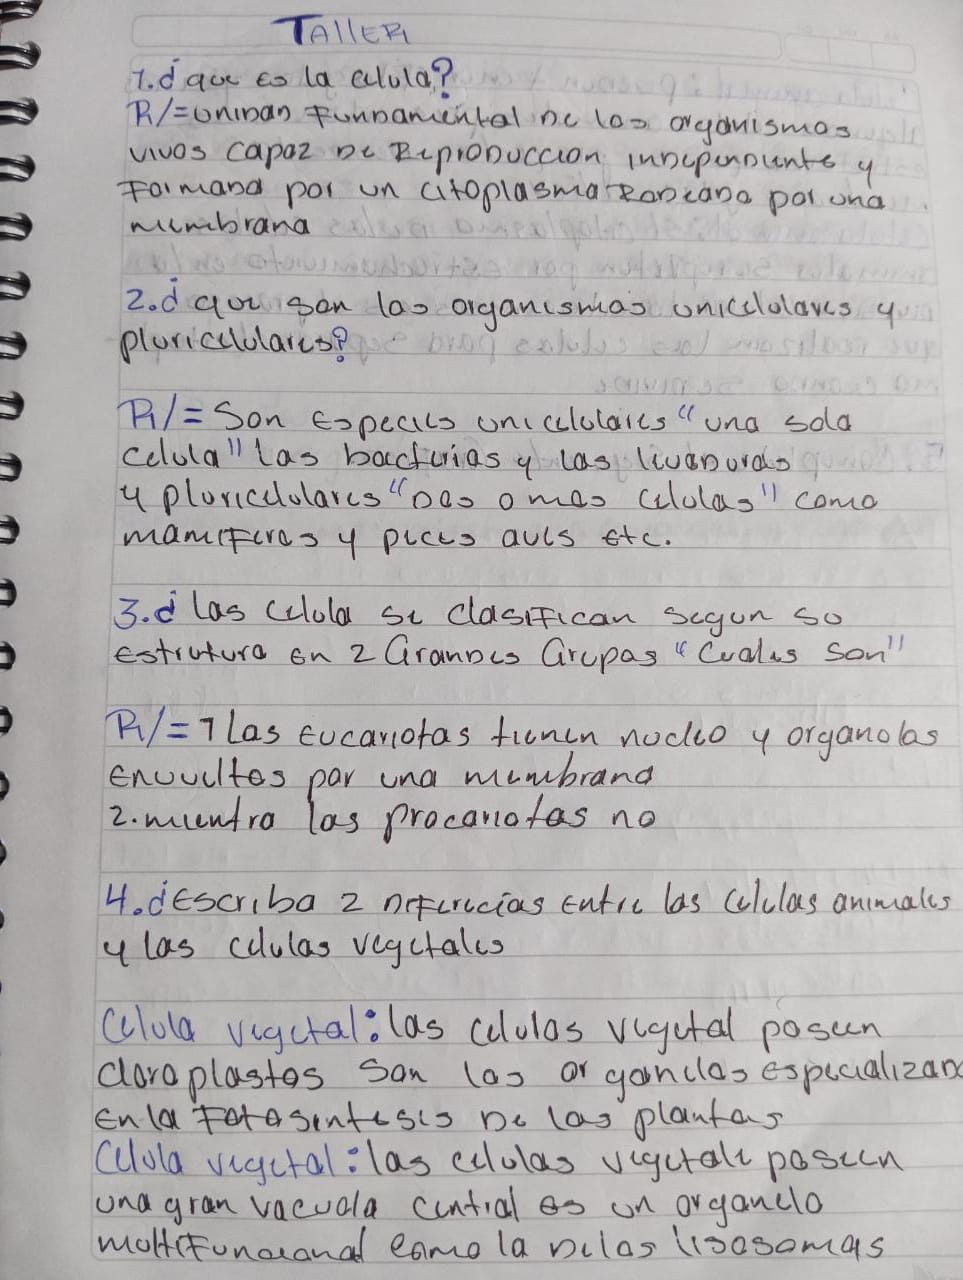 TAllER
1. ¿que es la celula?
R/= UNiDAD FUNDAmental De los organismos
vivos capaz De REpRODuccion InDepenDiente y
FormaDa por un citoplasma RoDeaDa por una
membrana
2. ¿que son los organismos unicelulares y
pluricelulares?
R/= Son Especies unicelulares "una sola
celula" las bacterias y las levaDuras
y pluricelulares "Dos o mas celulas" como
mamiFeros y peces aves etc.
3. ¿las celula se clasiFican segun so
estrutura en 2 GranDes Grupas "Cuales son"
R/= 1 las Eucariotas tienen nucleo y organolas
Envueltos por una membrana
2. mientra las procariotas no
4. ¿Escriba 2 DiFerecias entre las celulas animales
y las celulas vegetales
Celula vegetal: las celulas vegetal poseen
cloroplastos son los organelos especializaD
en la Fotosintesis De las plantas
Celula vegetal: las celulas vegetale poseen
una gran vacuola central es un organelo
multiFuncional como la De los lisosomas